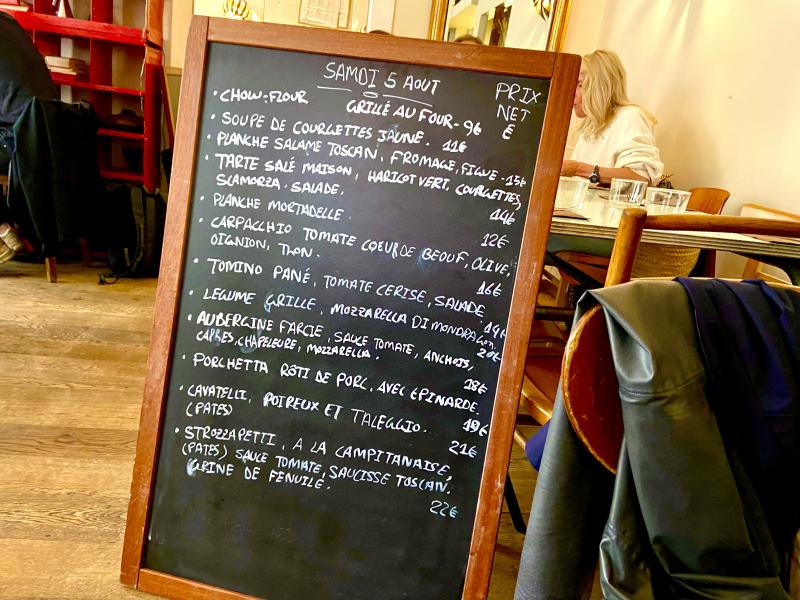 SAMDI 5 AOUT
PRIX
NET
€
• CHOW-FLOUR GRILLÉ AU FOUR - 9€
• SOUPE DE COURGETTES JAUNE. 11€
• PLANCHE SALAME TOSCAN, FROMAGE, FIGUE - 15€
• TARTE SALÉ MAISON, HARICOT VERT, COURGETTES,
SCAMORZA - SALADE. 14€
• PLANCHE MORTADELLE. 12€
• CARPACCHIO TOMATE COEUR DE BEOUF, OLIVE,
OIGNION, THON. 16€
• TOMINO PANÉ, TOMATE CERISE, SALADE 14€
• LEGUME GRILLE, MOZZARELLA DI MONDRAGON. 20€
• AUBERGINE FARCIE, SAUCE TOMATE, ANCHOIS,
CAPRES, CHAPELEURE, MOZZARELLA. 18€
• PORCHETTA RÔTI DE PORC, AVEC EPINARDE. 19€
• CAVATELLI, POIREUX ET TALEGGIO. 21€
(PATES)
• STROZZAPETTI, A LA CAMPITANAISE,
(PATES) SAUCE TOMATE, SAUCISSE TOSCAN.
GRINE DE FENUILE. 22€